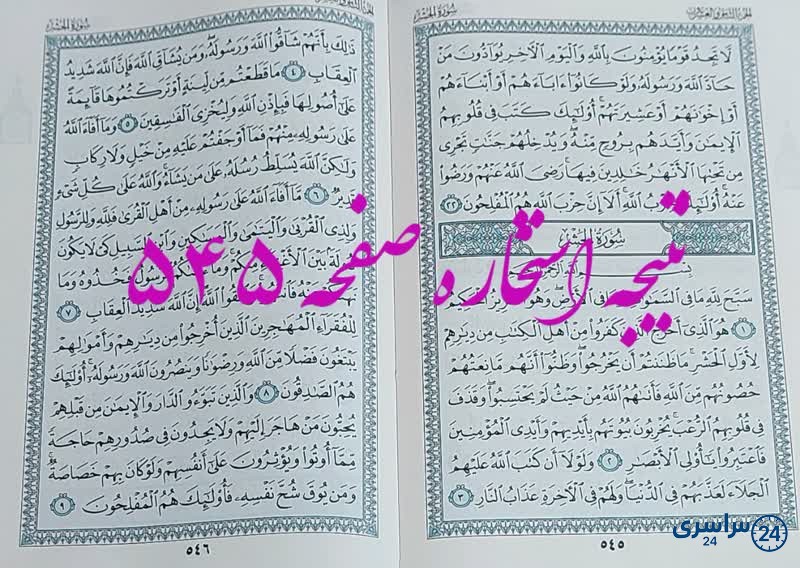 الجزء الثامن والعشرون
سورة الحشر
لَّا تَجِدُ قَوْمًا يُؤْمِنُونَ بِٱللَّهِ وَٱلْيَوْمِ ٱلْـَٔاخِرِ يُوَآدُّونَ مَنْ
حَآدَّ ٱللَّهَ وَرَسُولَهُۥ وَلَوْ كَانُوٓا۟ ءَابَآءَهُمْ أَوْ أَبْنَآءَهُمْ
أَوْ إِخْوَٰنَهُمْ أَوْ عَشِيرَتَهُمْ أُو۟لَٰٓئِكَ كَتَبَ فِى قُلُوبِهِمُ
ٱلْإِيمَٰنَ وَأَيَّدَهُم بِرُوحٍ مِّنْهُ وَيُدْخِلُهُمْ جَنَّٰتٍ تَجْرِى
مِن تَحْتِهَا ٱلْأَنْهَٰرُ خَٰلِدِينَ فِيهَا رَضِىَ ٱللَّهُ عَنْهُمْ وَرَضُوا۟
عَنْهُ أُو۟لَٰٓئِكَ حِزْبُ ٱللَّهِ أَلَآ إِنَّ حِزْبَ ٱللَّهِ هُمُ ٱلْمُفْلِحُونَ ٢٢
سُورَةُ الحَشْرِ
بِسْمِ ٱللَّهِ ٱلرَّحْمَٰنِ ٱلرَّحِيمِ
سَبَّحَ لِلَّهِ مَا فِى ٱلسَّمَٰوَٰتِ وَمَا فِى ٱلْأَرْضِ وَهُوَ ٱلْعَزِيزُ ٱلْحَكِيمُ
١ هُوَ ٱلَّذِىٓ أَخْرَجَ ٱلَّذِينَ كَفَرُوا۟ مِنْ أَهْلِ ٱلْكِتَٰبِ مِن دِيَٰرِهِمْ
لِأَوَّلِ ٱلْحَشْرِ مَا ظَنَنتُمْ أَن يَخْرُجُوا۟ وَظَنُّوٓا۟ أَنَّهُم مَّانِعَتُهُمْ
حُصُونُهُم مِّنَ ٱللَّهِ فَأَتَىٰهُمُ ٱللَّهُ مِنْ حَيْثُ لَمْ يَحْتَسِبُوا۟ وَقَذَفَ
فِى قُلُوبِهِمُ ٱلرُّعْبَ يُخْرِبُونَ بُيُوتَهُم بِأَيْدِيهِمْ وَأَيْدِى ٱلْمُؤْمِنِينَ
فَٱعْتَبِرُوا۟ يَٰٓأُو۟لِى ٱلْأَبْصَٰرِ ٢ وَلَوْلَآ أَن كَتَبَ ٱللَّهُ عَلَيْهِمُ
ٱلْجَلَآءَ لَعَذَّبَهُمْ فِى ٱلدُّنْيَا وَلَهُمْ فِى ٱلْـَٔاخِرَةِ عَذَابُ ٱلنَّارِ ٣
٥٤٥
الجزء الثامن والعشرون
سورة الحشر
ذَٰلِكَ بِأَنَّهُمْ شَآقُّوا۟ ٱللَّهَ وَرَسُولَهُۥ وَمَن يُشَآقِّ ٱللَّهَ فَإِنَّ ٱللَّهَ شَدِيدُ
ٱلْعِقَابِ ٤ مَا قَطَعْتُم مِّن لِّينَةٍ أَوْ تَرَكْتُمُوهَا قَآئِمَةً
عَلَىٰٓ أُصُولِهَا فَبِإِذْنِ ٱللَّهِ وَلِيُخْزِىَ ٱلْفَٰسِقِينَ ٥ وَمَآ أَفَآءَ ٱللَّهُ
عَلَىٰ رَسُولِهِۦ مِنْهُمْ فَمَآ أَوْجَفْتُمْ عَلَيْهِ مِنْ خَيْلٍ وَلَا رِكَابٍ
وَلَٰكِنَّ ٱللَّهَ يُسَلِّطُ رُسُلَهُۥ عَلَىٰ مَن يَشَآءُ وَٱللَّهُ عَلَىٰ كُلِّ شَىْءٍ
قَدِيرٌ ٦ مَّآ أَفَآءَ ٱللَّهُ عَلَىٰ رَسُولِهِۦ مِنْ أَهْلِ ٱلْقُرَىٰ فَلِلَّهِ وَلِلرَّسُولِ
وَلِذِى ٱلْقُرْبَىٰ وَٱلْيَتَٰمَىٰ وَٱلْمَسَٰكِينِ وَٱبْنِ ٱلسَّبِيلِ كَىْ لَا يَكُونَ
دُولَةًۢ بَيْنَ ٱلْأَغْنِيَآءِ مِنكُمْ وَمَآ ءَاتَىٰكُمُ ٱلرَّسُولُ فَخُذُوهُ وَمَا
نَهَىٰكُمْ عَنْهُ فَٱنتَهُوا۟ وَٱتَّقُوا۟ ٱللَّهَ إِنَّ ٱللَّهَ شَدِيدُ ٱلْعِقَابِ ٧
لِلْفُقَرَآءِ ٱلْمُهَٰجِرِينَ ٱلَّذِينَ أُخْرِجُوا۟ مِن دِيَٰرِهِمْ وَأَمْوَٰلِهِمْ
يَبْتَغُونَ فَضْلًا مِّنَ ٱللَّهِ وَرِضْوَٰنًا وَيَنصُرُونَ ٱللَّهَ وَرَسُولَهُۥٓ أُو۟لَٰٓئِكَ
هُمُ ٱلصَّٰدِقُونَ ٨ وَٱلَّذِينَ تَبَوَّءُو ٱلدَّارَ وَٱلْإِيمَٰنَ مِن قَبْلِهِمْ
يُحِبُّونَ مَنْ هَاجَرَ إِلَيْهِمْ وَلَا يَجِدُونَ فِى صُدُورِهِمْ حَاجَةً
مِّمَّآ أُوتُوا۟ وَيُؤْثِرُونَ عَلَىٰٓ أَنفُسِهِمْ وَلَوْ كَانَ بِهِمْ خَصَاصَةٌ
وَمَن يُوقَ شُحَّ نَفْسِهِۦ فَأُو۟لَٰٓئِكَ هُمُ ٱلْمُفْلِحُونَ ٩
٥٤٦
نتیجه استخاره صفحه ۵۴۵
سراسری
24
24